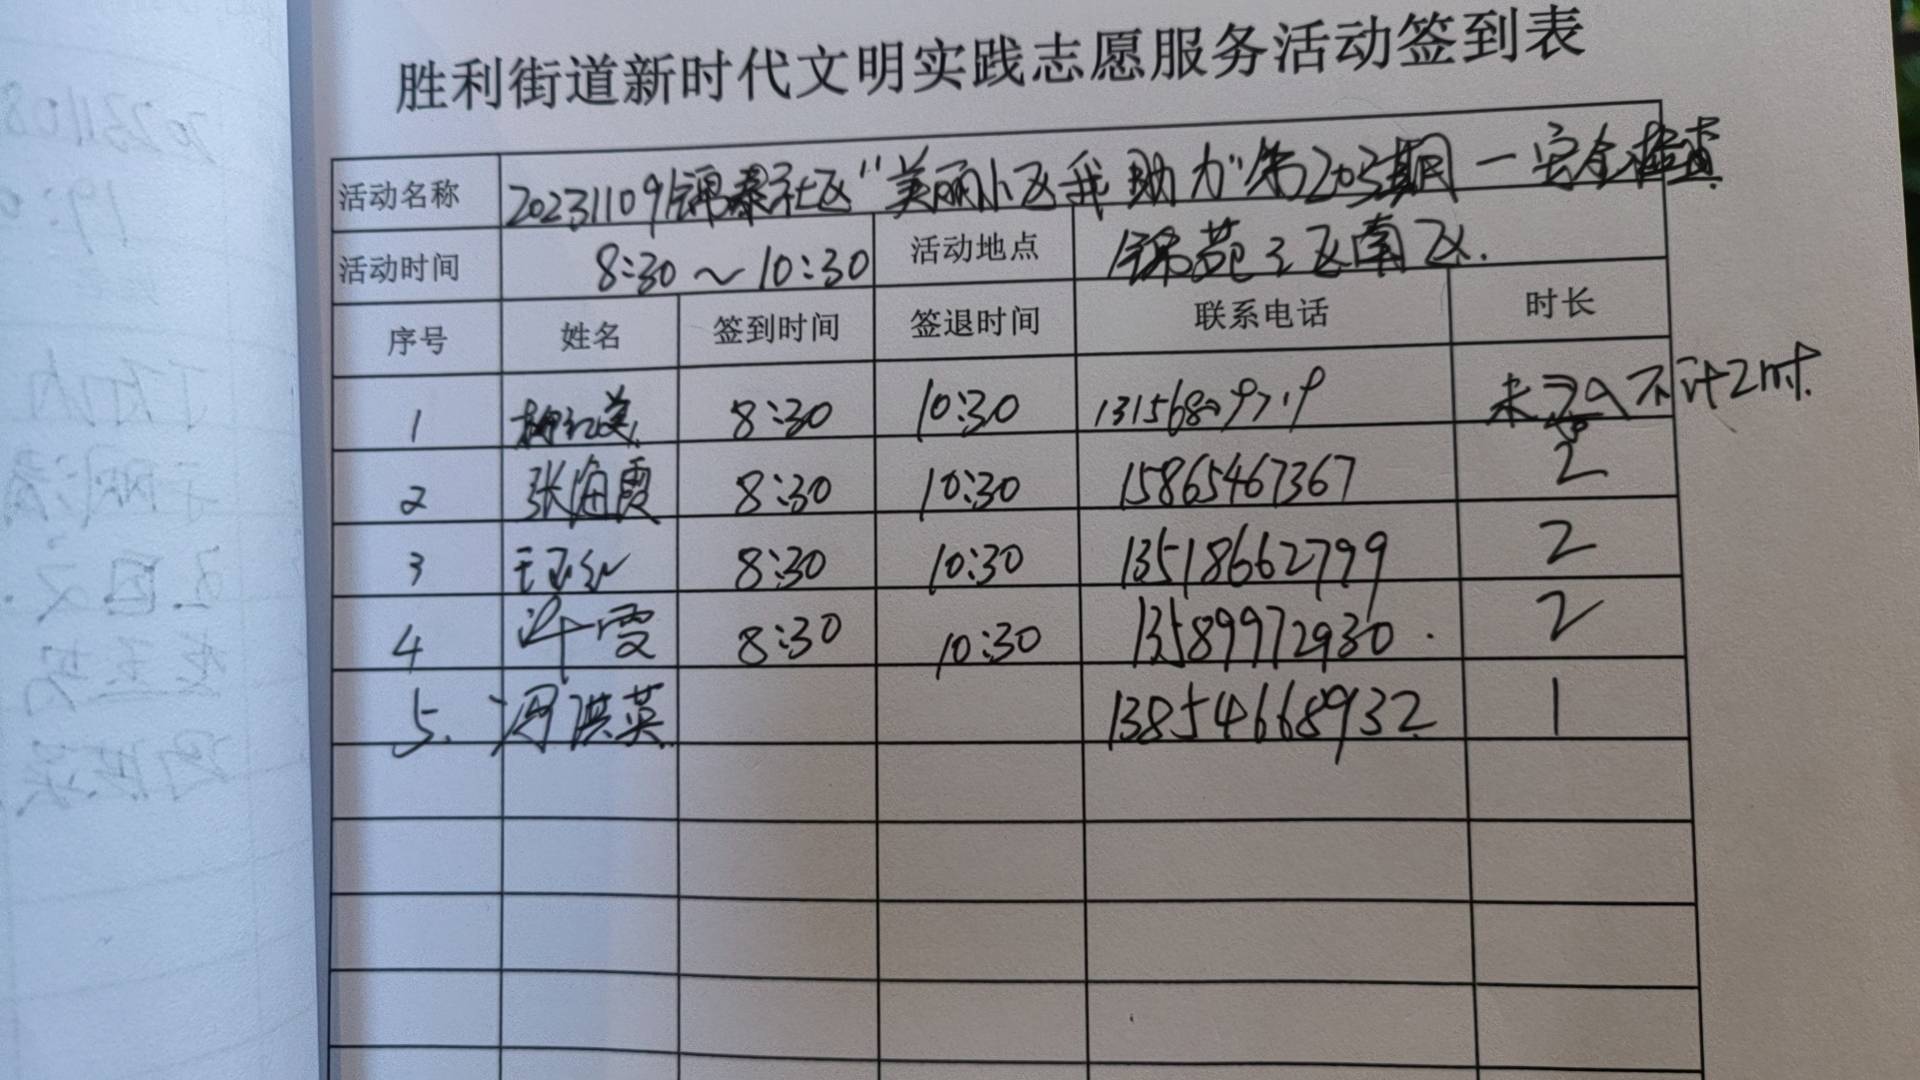 胜利街道新时代文明实践志愿服务活动签到表
活动名称 20231109锦泰社区“美丽小区我助力”第203期一安全检查
活动时间 8:30～10:30 活动地点 锦苑三区南区.
序号 姓名 签到时间 签退时间 联系电话 时长
1 8:30 10:30 未 不计2时.
2 张海霞 8:30 10:30 15865467367 2
3 8:30 10:30 13518662799 2
4 许霞 8:30 10:30 13589972930 2
5. 冯洪英 13854668932 1
20231108